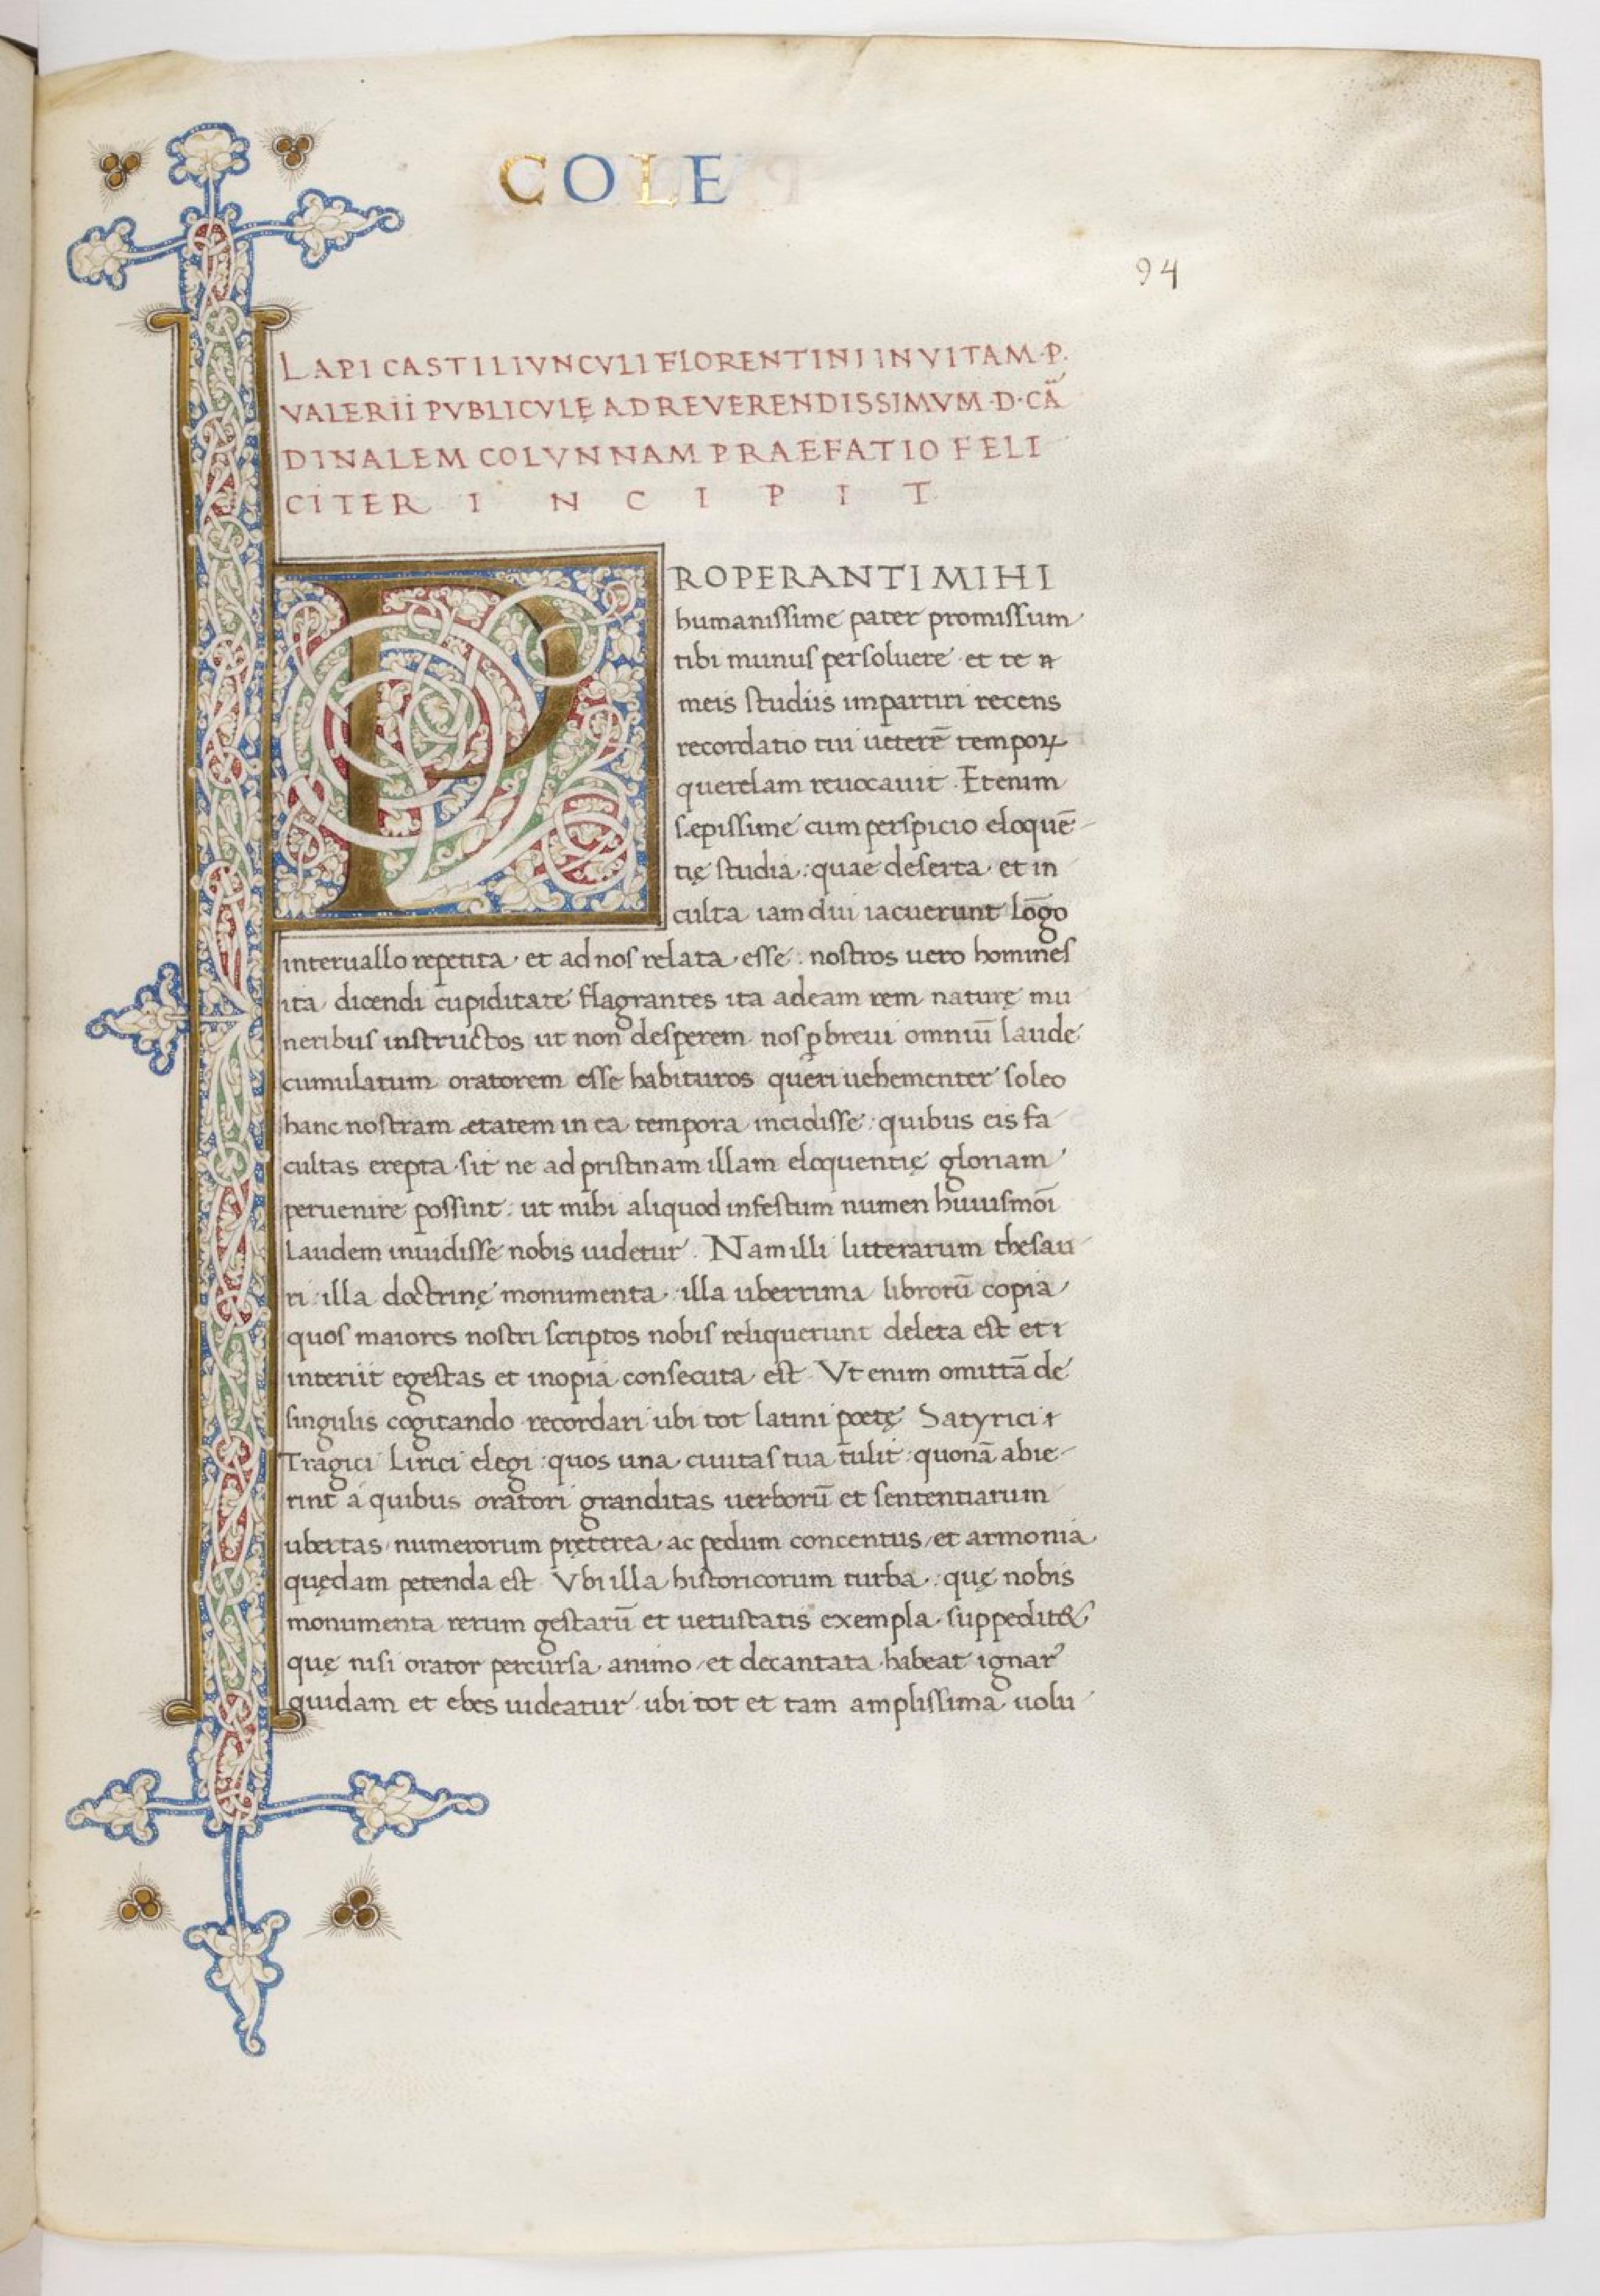 COLE
94
LAPI CASTILIVNCVLI FLORENTINI IN VITAM · P.
VALERII PVBLICVLĘ AD REVERENDISSIMVM · D · CĀ
DINALEM COLVNNAM PRAEFATIO FELI
CITER I N C I P I T
PROPERANTI MIHI
humanissime pater promissum
tibi munus persoluere · et te
meis studiis impartiri recens
recordatio tui ueterē tempoꝝ
querelam reuocauit · Etenim
sæpissime cum perspicio eloquē
tię studia : quae deserta · et in
culta iam diu iacuerunt lōgo
interuallo repetita · et ad nos relata · esse : nostros uero homines
ita dicendi cupiditate flagrantes ita ad eam rem naturę mu
neribus instructos ut non desperem nos ꝑ breui omniū laude
cumulatum oratorem esse habituros queri uehementer soleo
hanc nostram ætatem in ea tempora incidisse : quibus eis fa
cultas erepta sit ne ad pristinam illam eloquentię gloriam
peruenire possint : ut mihi aliquod infestum numen huiusmōi
laudem inuidisse nobis uidetur . Nam illi litterarum thesau
ri : illa doctrinę monumenta · illa uberrima librorū copia
quos maiores nostri scriptos nobis reliquerunt deleta est et
interiit egestas et inopia consecuta est · Vt enim omittā de
singulis cogitando recordari ubi tot latini poetę Satyrici
Tragici Lirici elegi : quos una ciuitas tua tulit : quonā abie
rint a quibus oratori granditas uerborū et sententiarum
ubertas numerorum pręterea ac pedum concentus et armonia
quędam petenda est · Vbi illa historicorum turba : quę nobis
monumenta rerum gestarū et uetustatis exempla suppedit&
quę nisi orator percursa animo et decantata habeat ignarꝰ
quidam et ebes uideatur ubi tot et tam amplissima uolu